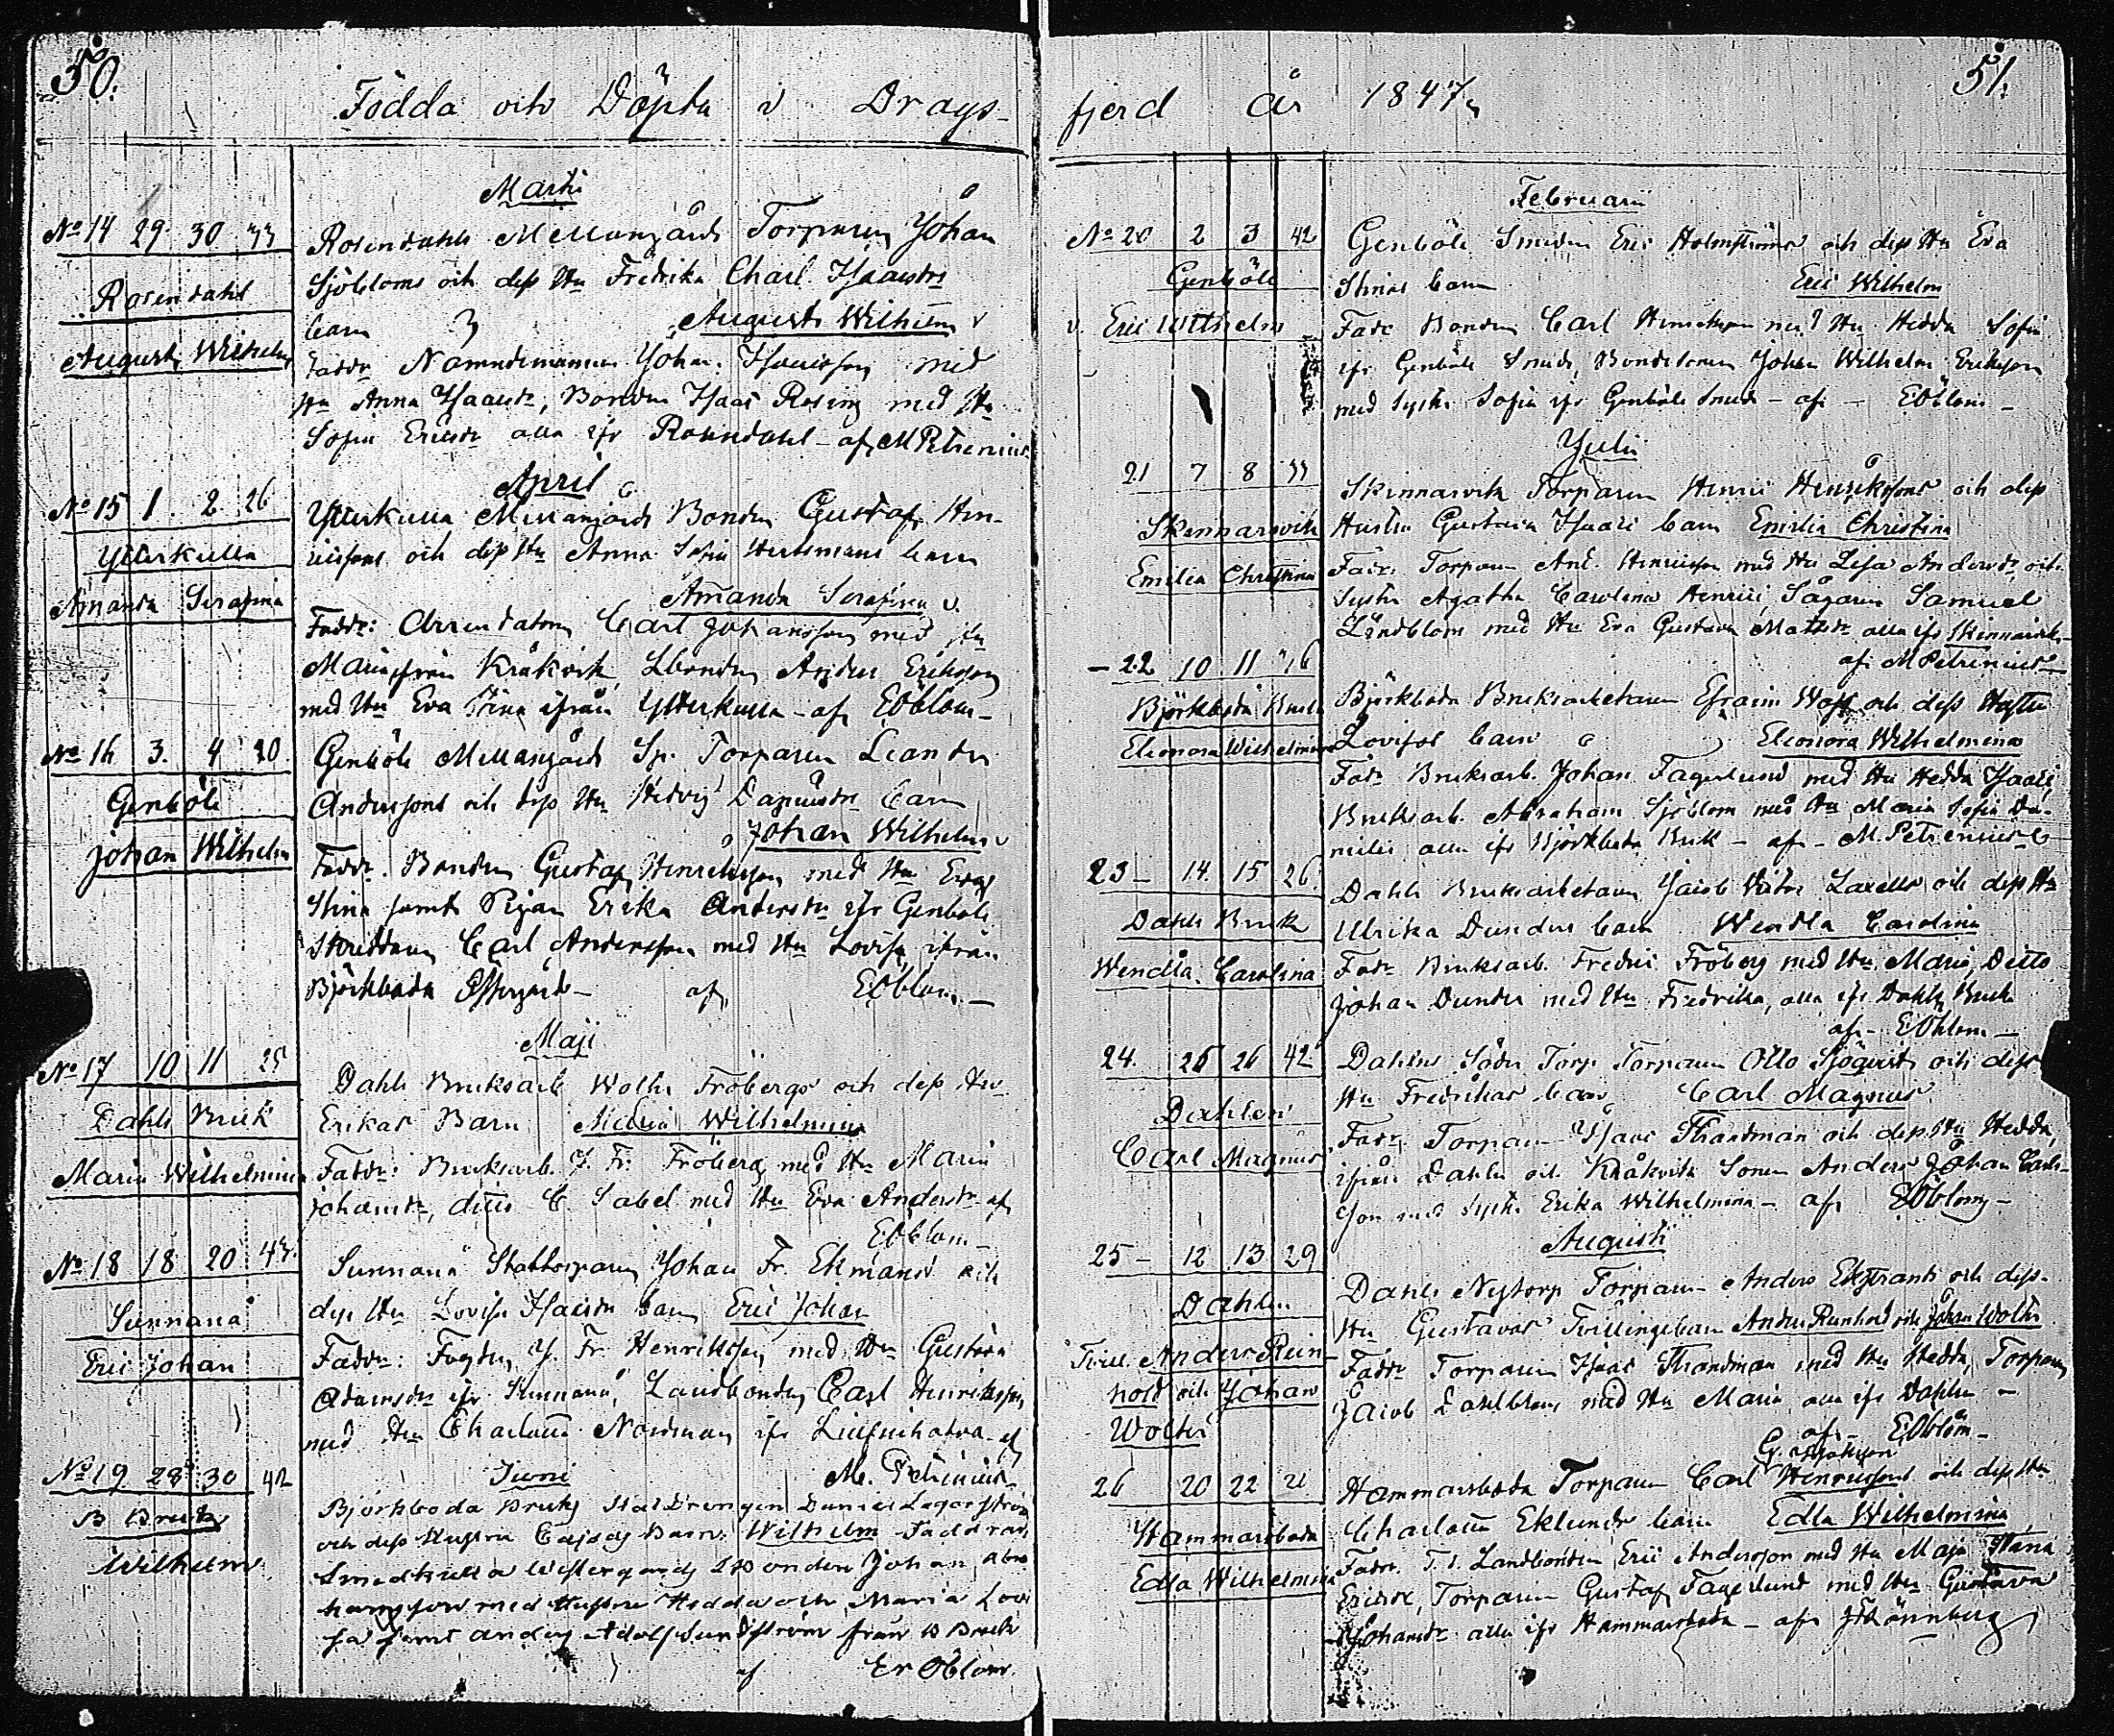 50.
Födda och Döpta i Drags-
Martii
No 14 29. 30 33
Rosendahl
August Wilhelm
Rosendahls Mellangårds Torparen Johan
Sjöbloms och dess Hu Fredrika Charl. Isaacsdrs
barn August Wilhelm
Faddr Nämndemannen Johan Isaacsson med
Hu Anna Isaacsdr, Bonden Isaac Rosing med Hu
Sofia Ericsdr alla ifr Rosendahl - af M Petrenius
April
No 15 1 2 26
Ytterkulla
Amanda Serafina
Ytterkulla Mellangårds Bonden Gustaf Hen-
ricssons och dess Hu Anna Sofia barn
Amanda Serafina
Faddr: Arrendatorn Carl Johansson med Hu
Maria från Kråkvik, Lbonden Anders Eriksson
med Hu Eva Stina ifrån Ytterkulla - af EÖblom -
No 16 3. 4 20.
Genböle
Johan Wilhelm
Genböle Mellangårds Sp. Torparen Leander
Anderssons och dess Hu Hedvig barn
Johan Wilhelm
Faddr. Bonden Gustaf Henricsson med Hu Eva
Stina samt Pigan Erika Andersdr ifr Genböle
Skreddaren Carl Andersson med Hu Lovisa ifrån
Björkboda - af EÖblom -
Maji
No 17 10 11 25
Dahls Bruk
Maria Wilhelmina
Dahls Bruksarb Wolter Fröbergs och dess Hu
Erikas Barn Maria Wilhelmina
Faddr: Bruksarb. J. Fr. Fröberg med Hu Maria
Johansdr, ditto C. Sabel med Hu Eva Andersdr af
EÖblom -
No 18 18 20 43.
Sunnanå
Eric Johan
Sunnanå Stattorparen Johan Fr. Ekmans och
dess Hu Lovisa Isacsdrs barn Eric Johan
Faddr: Fogden J. Fr. Henriksson med Hu Gustava
Adamsdr ifr Sunnanå, Landbonden Carl Henriksson
med Hu Charlotta Nordman ifr af
M. Petrenius
Junii
No 19 28 30 42
B Bruk
Wilhelm
Björkboda Bruks Staldrengen Daniel Lagerström
och dess Hustru Cajsas Barn: Wilhelm Faddrar
Smedkulla Westergårds Lbonden Johan
hansson med Hustru Hedda och Maria Lovi
sa samt Adolf Sundström från B Bruk
af Er Öblom
51.
fjerd år 1847
Februarii
No 20 2 3 42
Genböle
Eric Wilhelm
Genböle Smeden Eric Holmströms och dess Hu Eva
Stinas barn Eric Wilhelm
Fadr Bonden Carl Henricsson med Hu Hedda Sofia
ifr Genböle Smeds, Bondesonen Johan Wilhelm Eriksson
med Systr Sofia ifr Genböle Smeds - af - EÖblom -
Julii
21 7 8 33
Skinnarvik
Emilia Christina
Skinnarvik Torparen Henric Henrikssons och dess
Hustru Gustava Isaacs barn Emilia Christina
Fadr: Torparen And. Henricsson med Hu Lisa Andersdr, och
Systr Agatha Carolina Henrics, Sågaren Samuel
Lindblom med Hu Eva Gustava Matsdr alla ifr Skinnarvik
af M Petrenius
- 22 10 11
Björkboda Bruk
Eleonora Wilhelmina
Björkboda Bruksarbetaren Efraim och dess Hustru
Lovisas barn Eleonora Wilhelmina
Fadr Bruksarb. Johan Fagerlund med Hu Hedda Isaacs,
Bruksarb. Abraham Sjöblom med Hu Maria Sofia Da-
niels alla ifr Björkboda Bruk - af - M. Petrenius
23 - 14. 15 26.
Dahls Bruk
Wendla Carolina
Dahls Bruksarbetaren Jacob Victor och dess Hu
Ulrika Dunders barn Wendla Carolina
Fadr Bruksarb. Fredric Fröberg med Hu Maria, Ditto
Johan Dunder med Hu Fredrika, alla ifr Dahls Bruk
af - EÖblom -
24. 25 26 42
Dahlen
Carl Magnus
Dahlens Södr Torp Torparen Otto Sjöqvists och dess
Hu Fredrikas barn Carl Magnus
Fadr Torparen Isaac Strandman och dess Hu Hedda,
ifrån Dahlen och Kråkvik Sonen Anders Johan Carls-
son med Systr Erika Wilhelmina - af EÖblom -
Augusti
25 - 12 13 29
Dahlen
Tvill. Anders Rein
hold och Johan
Wolter
Dahls Nytorp Torparen Anders Ekstrands och dess
Hu Gustavas Tvillingebarn Anders Reinhold och Johan Wolter
Fadr Torparen Isaac Strandman med Hu Hedda, Torparen
Jacob Dahlblom med Hu Maria alla ifr Dahlen -
af - EÖblom -
26 20 22 21
Hammarsboda
Edla Wilhelmina
Hammarsboda Torparen Carl Henricssons och dess Hu
Charlotta Eklunds barn Edla Wilhelmina
Fadr. Landbonden Eric Andersson med Hu Maja Stina
Ericsdr, Torparen Gustaf Fagerlund med Hu Gustava
Johansdr alla ifr Hammarsboda - af